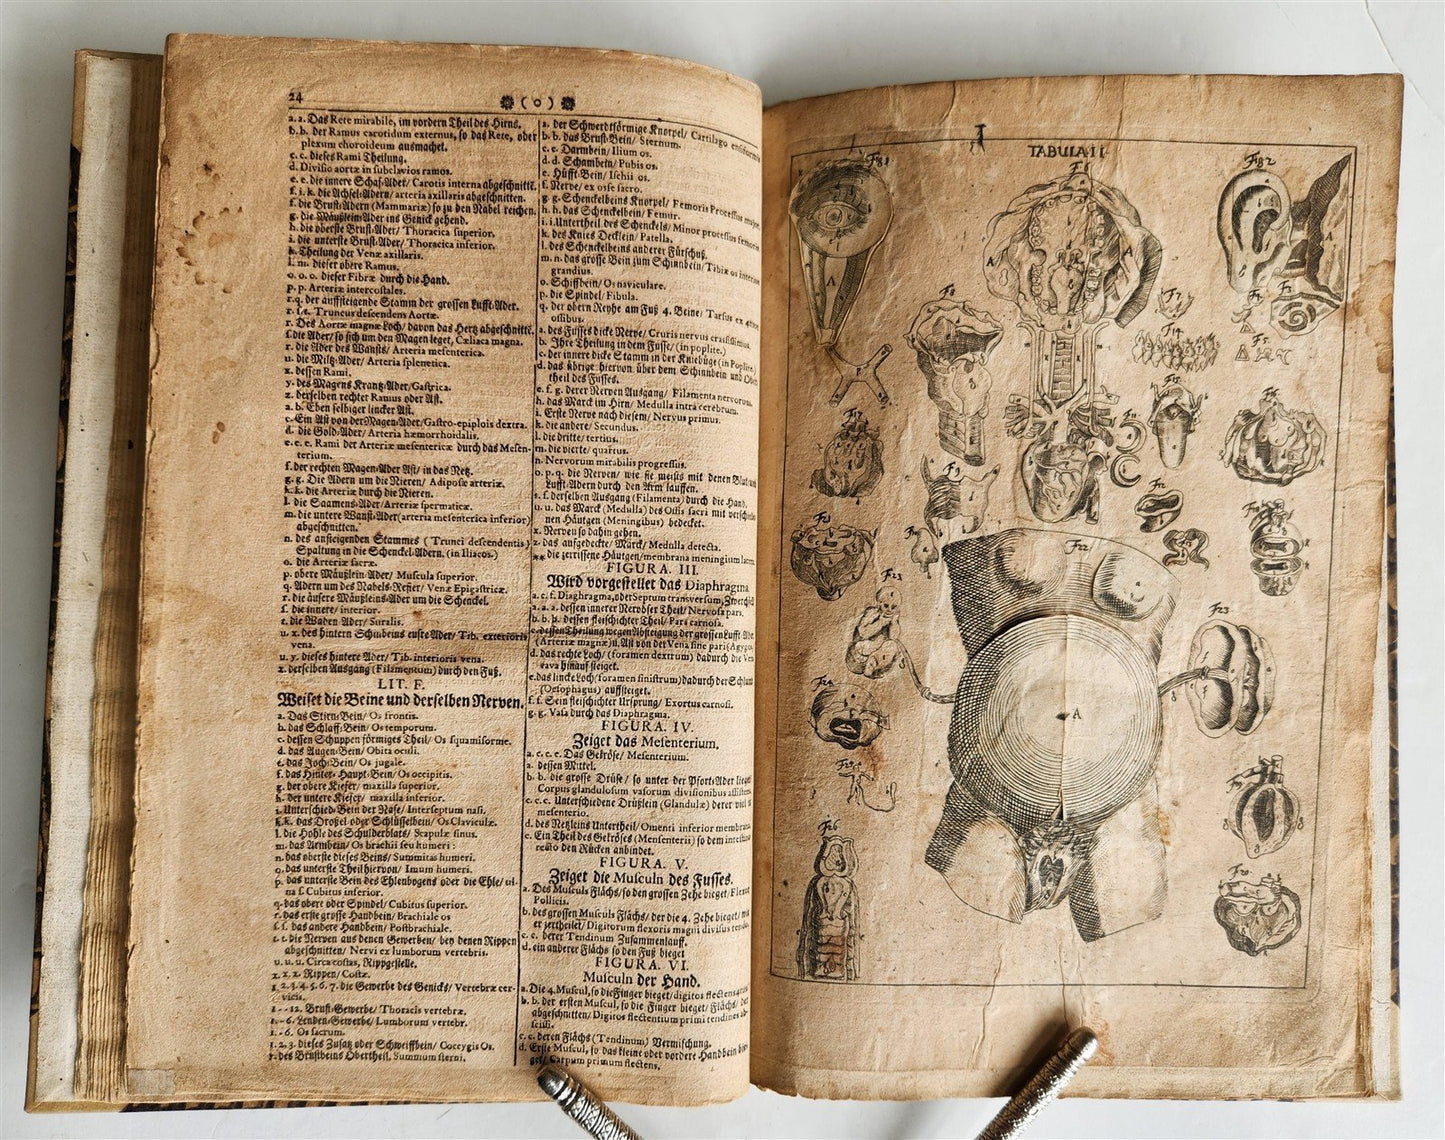 24
( o )
a. a. Das Rete mirabile, im vordern Theil des Hirns.
b. b. der Ramus carotidum externus, so das Rete, oder
plexum choroideum ausmachet.
c. c. dieses Rami Theilung.
d. Divisio aortæ in subclavios ramos.
e. e. die innere Schaf-Ader/ Carotis interna abgeschnittẽ.
f. i. k. die Achsel-Adern/ arteria axillaris abgeschnitten.
f. die Brust-Adern (Mammariæ) so zu den Nabel reichen.
g. die Mäußlein-Ader ins Genick gehend.
h. die oberste Brust-Ader/ Thoracica superior.
i. die unterste Brust-Ader/ Thoracica inferior.
k. Theilung der Venæ axillaris.
l. m. dieser obere Ramus.
o. o. o. dieser Fibræ durch die Hand.
p. p. Arteriæ intercostales.
r. q. der auffsteigende Stamm der grossen Lufft-Ader.
r. s. t. Truncus descendens Aortæ.
r. Des Aortæ magnæ Loch/ davon das Hertz abgeschnittẽ.
s. die Ader/ so sich um den Magen leget, Cæliaca magna.
t. die Ader des Wansts/ Arteria mesenterica.
u. die Miltz-Ader/ Arteria splenetica.
x. dessen Rami.
y. des Magens Krantz-Ader/ Gastrica.
z. derselben rechter Ramus oder Ast.
a. b. Eben selbiger lincker Ast.
c. Ein Ast von der Magen-Ader/ Gastro-epiplois dextra.
d. die Gold-Ader/ Arteria hæmorrhoidalis.
e. e. e. Rami der Arteriæ mesentericæ durch das Mesen-
terium.
f. der rechten Magen-Ader Ast/ in das Netz.
g. g. Die Adern um die Nieren/ Adiposæ arteriæ.
k. k. die Arteriæ durch die Nieren.
l. die Saamens-Ader/ Arteriæ spermaticæ.
m. die untere Wanst-Ader (arteria mesenterica inferior)
abgeschnitten.
n. des ansteigenden Stammes ( Trunci descendentis )
Spaltung in die Schenckel-Adern. (in Iliacos.)
o. die Arteriæ sacræ.
p. obere Mäußlein-Ader/ Muscula superior.
q. Adern um des Nabels-Refier/ Venæ Epigastricæ.
r. die äusere Mäußleins-Ader um die Schenckel.
s. die innere/ interior.
t. die Waden Ader/ Suralis.
u. x. des hintern Schinbeins eusre Ader/ Tib. exterioris
vena.
u. y. dieses hintere Ader/ Tib. interioris vena.
z. derselben Ausgang (Filamentum) durch den Fuß.
LIT. F.
Weiset die Beine und derselben Nerven.
a. Das Stirn-Bein/ Os frontis.
b. das Schlaff-Bein/ Os temporum.
c. dessen Schuppen förmiges Theil/ Os squamiforme.
d. das Augen-Bein/ Obita oculi.
e. das Joch-Bein/ Os jugale.
f. das Hinter-Haupt-Bein/ Os occipitis.
g. der obere Kiefer/ maxilla superior.
h. der untere Kiefer/ maxilla inferior.
i. Unterschied-Bein der Nase/ Interseptum nasi.
k. k. das Drossel oder Schlüsselbein/ Os Claviculæ.
l. die Höhle des Schulderblats/ Scapulæ sinus.
m. das Armbein/ Os brachii seu humeri :
n. das oberste dieses Beins/ Summitas humeri.
o. das unterste Theil hiervon/ Imum humeri.
p. das unterste Bein des Ehlenbogens oder die Ehle/ ul-
na s. Cubitus inferior.
q. das obere oder Spindel/ Cubitus superior.
r. das erste grosse Handbein/ Brachiale os
s. s. das andere Handbein/ Postbrachiale.
t. t. die Nerven aus denen Gewerben/ bey denen Rippen
abgeschnitten/ Nervi ex lumborum vertebris.
u. u. u. Circa costas, Rippgestelle.
x. z. z. Rippen/ Costæ.
1. 2. 3. 4. 5. 6. 7. die Gewerbe des Genicks/ Vertebræ cer-
vicis.
1 - - 12. Brust-Gewerbe/ Thoracis vertebræ.
1. - 6. Lenden-Gewerbe/ Lumborum vertebr.
1. - 6. Os sacrum.
1. 2. 3. dieses Zusatz oder Schweiffbein/ Coccygis Os.
z. des Brustbeins Obertheil. Summum sterni.
a. der Schwerdtförmige Knorpel/ Cartilago ensiformis
b. b. das Brust-Bein/ Sternum.
c. c. Darmbein/ Ilium os.
d. d. Schambein/ Pubis os.
e. Hüfft-Bein/ Ischii os.
f. Nerve/ ex osse sacro.
g. g. Schenckelbeins Knorpel/ Femoris Processus major.
h. h. das Schenckelbein/ Femur.
i. i. Untertheil des Schenckels/ Minor processus femoris
k. des Knies Decklein/ Patella.
l. des Schenckelbeins anderer Fürschuß.
m. n. das grosse Bein zum Schinnbein/ Tibiæ os interius
grandius.
o. Schiffbein/ Os naviculare.
p. die Spindel/ Fibula.
q. der obern Reyhe am Fuß 4. Beine/ Tarsus ex
ossibus.
a. des Fusses dicke Nerve/ Cruris nervus crassissimus.
b. Ihre Theilung in dem Fusse/ (in poplite.)
c. der innere dicke Stamm in der Kniebüge (in Poplite)
d. das übrige hiervon über dem Schinnbein und Ober-
theil des Fusses.
e. f. g. derer Nerven Ausgang/ Filamenta nervorum.
h. das Marck im Hirn/ Medulla intra cerebrum.
i. Erste Nerve nach diesem/ Nervus primus.
k. die andere/ Secundus.
l. die dritte/ tertius.
m. die vierte/ quartus.
n. Nervorum mirabilis progressus.
o. p. q. die Nerven, wie sie meists mit denen Blut und
Lufft-Adern durch den Arm lauffen.
s. f. derselben Ausgang (Filamenta) durch die Hand.
u. u. das Marck (Medulla) des Ossis sacri mit
nen Häutgen (Meningibus) bedecket.
x. Nerven so dahin gehen.
z. das aufgedeckte/ Marck/ Medulla detecta.
** die zerrissene Häutgen/ membrana meningium
FIGURA. III.
Wird vorgestellet das Diaphragma
a. c. f. Diaghragma, oder Septum transversum, Zwerchfel
a. a. a. dessen innerer Nervöser Theil/ Nervosa pars.
b. b. b. dessen fleischichter Theil/ Pars carnosa.
c. dessen Theilung wegen Absteigung der grossen Lufft Ader
(Arteriæ magnæ) u. Ast von der Vena sine pari (Azygos)
d. das rechte Loch/ (foramen dextrum) dadurch die Ven
cava hinauf steiget.
e. das lincke Loch (foramen sinistrum) dadurch der Schlund
(Oesophagus) auffsteiget.
f. f. Sein fleischichter Ursprung/ Exortus carnosi.
g. g. Vasa durch das Diaphragma.
FIGURA. IV.
Zeiget das Mesenterium.
a. c. c. c. Das Gekröse/ Mesenterium.
a. dessen Mittel.
b. b. die grosse Drüse/ so unter der Pfort-Ader lieget
Corpus glandulosum vasorum divisionibus assistens.
c. c. c. Unterschiedene Drüßlein (Glandulæ) derer viel in
mesenterio.
d. des Netzleins Untertheil/ Omenti inferior membrana
e. Ein Theil des Gekröses (Mensenterii) so dem intestino
recto den Rücken anbindet.
FIGURA. V.
Zeiget die Musculn des Fusses.
a. Des Musculs Flächs/ so den grossen Zehe bieget/ Flexor
Pollicis.
b. des grossen Musculs Flächs/ der die 4. Zehe bieget/
er zertheilet/ Digitorum flexoris magni divisus tendo
c. c. derer Tendinum Zusammenlauff.
d. ein anderer Flächs so den Fuß bieget
FIGURA. VI.
Musculn der Hand.
a. Die 4. Muscul, so die Finger bieget/ digitos flectens
b. b. der ersten Muscul, so die Finger bieget/ Flächs/ der
abgeschnitten/ Digitos flectentium primi tendines ab-
scissi.
c. c. deren Flächs (Tendinum) Vermischung.
d. Erste Muscul, so das kleine oder vordere Handbein bie-
get/ Carpum primum flectens.
TABULA II
A
A
A
A
A
F 22
F 23
F 23
F 24
F 25
F 26